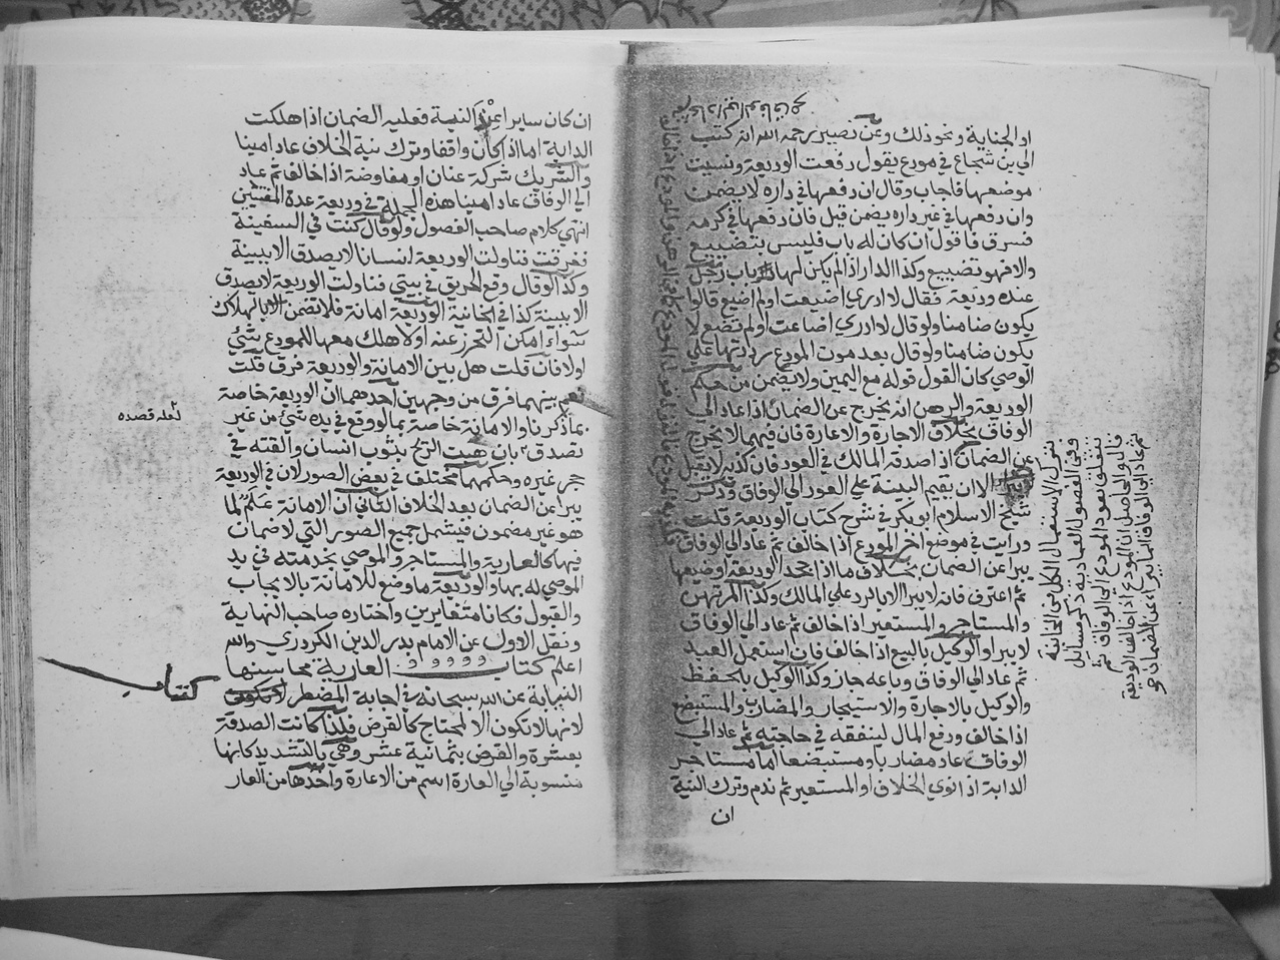 او الجناية ونحو ذلك وعن نصير رحمه الله انه كتب
الي بن شجاع في مودع يقول دفعت الوديعة ونسيت
موضعها فاجاب وقال ان دفعها في داره لا يضمن
وان دفعها في غير داره يضمن قيل فان دفعها في كرمه
فسرق فاقول ان كان له باب فليس بتضييع
والا فهو تضييع وكذا الدار اذا لم يكن لها باب رجل
عنده وديعة فقال لا ادري اضيعت او لم اضيع قالوا
يكون ضامنا ولو قال لا ادري اضاعت او لم تضع لا
يكون ضامنا ولو قال بعد موت المودع رددتها علي
الوصي كان القول قوله مع اليمين ولا يضمن من حكم
الوديعة والرهن انه يخرج عن الضمان اذا عاد الي
الوفاق بخلاف الاجارة والاعارة فان فيهما لا يخرج
عن الضمان اذا صدقه المالك في العود فان كذبه لا يقبل
الا ان يقيم البينة علي العود الي الوفاق وذكر
شيخ الاسلام ابو بكر في شرح كتاب الوديعة قلت
ورايت في موضع اخر المودع اذا خالف ثم عاد الي الوفاق
يبرا عن الضمان بخلاف ما اذا جحد الوديعة او ضيعها
ثم اعترف فانه لا يبرا الا بالرد علي المالك وكذا المرتهن
والمستاجر والمستعير اذا خالف ثم عاد الي الوفاق
لا يبرا والوكيل بالبيع اذا خالف فان استعمل العبد
ثم عاد الي الوفاق وباعه جاز وكذا الوكيل بالحفظ
والوكيل بالاجارة والاستيجار والمضارب والمستبضع
اذا خالف ودفع المال لينفقه في حاجته ثم عاد الي
الوفاق عاد مضاربا ومستبضعا اما مستاجر
الدابة اذا نوي الخلاف او المستعير ثم ندم وترك النية
ان
بترك الاستعمال الكل من الخانية
وفي الفصول العمادية ذكر مسائل
تتعلق بعود المودع الي الوفاق ثم
قال والحاصل ان المودع اذا خالف الوديعة
ثم عاد الي الوفاق انما يبراء عن الضمان
ان كان سايرا عند النية فعليه الضمان اذا هلكت
الدابة اما اذا كان واقفا وترك نية الخلاف عاد امينا
والشريك شركة عنان او مفاوضة اذا خالف ثم عاد
الي الوفاق عاد امينا هذه الجملة في وديعة عدة المفتيين
انتهي كلام صاحب الفصول ولو قال كنت في السفينة
فغرقت فناولت الوديعة انسانا لا يصدق الا ببينة
وكذا لو قال وقع الحريق في بيتي فناولت الوديعة لا يصدق
الا ببينة كذا في الخانية الوديعة امانة فلا تضمن الا بالهلاك
سواء امكن التحرز عنه او لا هلك معها للمودع شئ
او لا فان قلت هل بين الامانة والوديعة فرق قلت
نعم بينهما فرق من وجهين احدهما ان الوديعة خاصة
بما ذكرنا والامانة خاصة بما لو وقع في يده شئ من غير
تصدق بان هبت الريح بثوب انسان والقته في
حجر غيره وحكمهما مختلف في بعض الصور لان في الوديعة
يبرا عن الضمان بعد الخلاف الثاني ان الامانة علم لما
هو غير مضمون فيشمل جميع الصور التي لا ضمان
فيها كالعارية والمستاجر والموصي بخدمته في يد
الموصي له بها والوديعة ما وضع للامانة بالايجاب
والقبول فكانا متغايرين واختاره صاحب النهاية
ونقل الاول عن الامام بدر الدين الكردري والله
اعلم كتاب العارية محاسنها
النيابة عن الله سبحانه في اجابة المضطر
لانها لا تكون الا لمحتاج كالقرض فلذا كانت الصدقة
بعشرة والقرض بثمانية عشر وهي بالتشديد كانها
منسوبة الي العارة اسم من الاعارة واخذها من العار
لعله قصده
كتاب